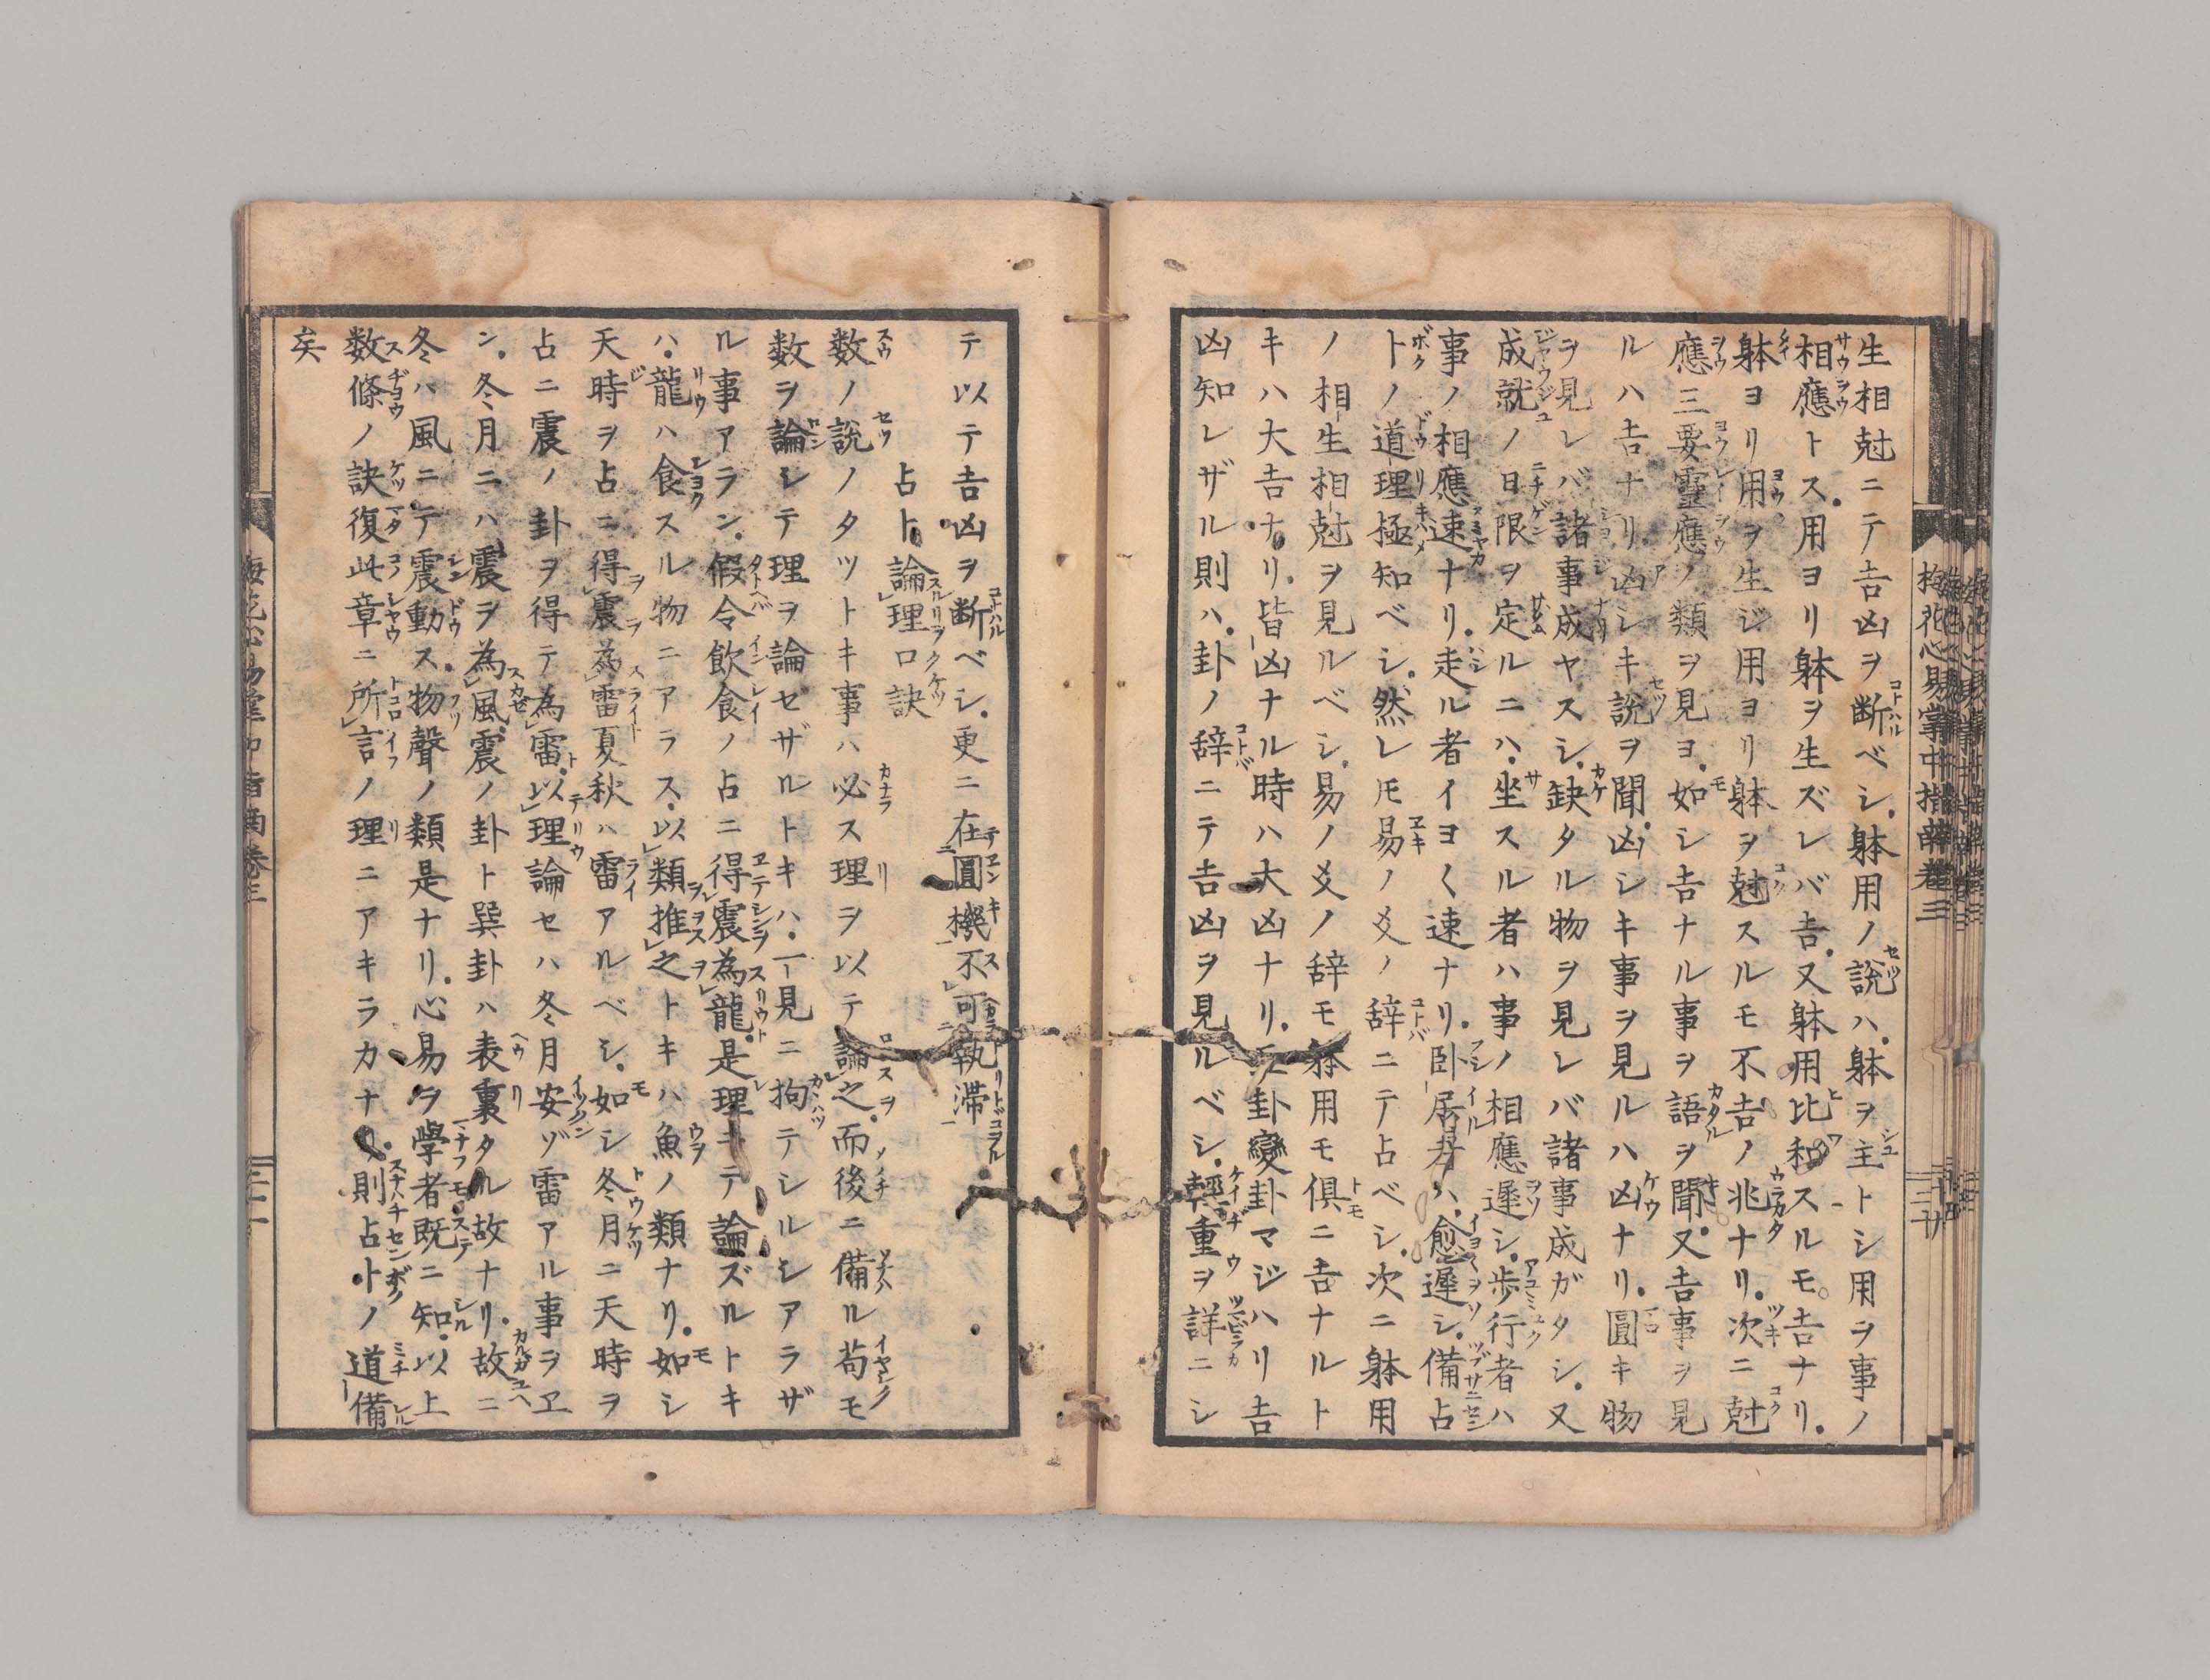 生相尅ニテ吉凶ヲ断ベシ躰用ノ説ハ躰ヲ主トシ用ヲ事ノ
相應トス用ヨリ躰ヲ生ズレバ吉又躰用比和スルモ吉ナリ
躰ヨリ用ヲ生ジ用ヨリ躰ヲ尅スルモ不吉ノ兆ナリ次ニ尅
應三要霊應ノ類ヲ見ヨ如シ吉ナル事ヲ語ヲ聞又吉事ヲ見
ルハ吉ナリ凶シキ説ヲ聞凶シキ事ヲ見ルハ凶ナリ圓キ物
ヲ見レバ諸事成ヤスシ缺タル物ヲ見レバ諸事成ガタシ又
成就ノ日限ヲ定ルニハ坐スル者ハ事ノ相應遲シ歩行者ハ
事ノ相應速ナリ走ル者イヨく速ナリ卧居者ハ愈遲シ備占
卜ノ道理極知ベシ然レ𪜈易ノ爻ノ辞ニテ占ベシ次ニ躰用
ノ相生相尅ヲ見ルベシ易ノ爻ノ辞モ躰用モ倶ニ吉ナルト
キハ大吉ナリ皆凶ナル時ハ大凶ナリ卦變卦マジハリ吉
凶知レザル則ハ卦ノ辞ニテ吉凶ヲ見ルベシ輕重ヲ詳ニシ
梅花心易掌中指南巻三
テ以テ吉凶ヲ断ベシ更ニ在圓機不可執滞
占卜論理口訣
数ノ説ノタツトキ事ハ必ス理ヲ以テ論之而後ニ備ル苟モ
数ヲ論シテ理ヲ論セザルトキハ一見ニ拘テシルシアラザ
ル事アラン假令飲食ノ占ニ得震為龍是理ニテ論ズルトキ
ハ龍ハ食スル物ニアラス以類推之トキハ魚ノ類ナリ如シ
天時ヲ占ニ得震為雷夏秋ハ雷アルベシ如シ冬月ニ天時ヲ
占ニ震ノ卦ヲ得テ為雷以理論セハ冬月安ゾ雷アル事ヲヱ
ン冬月ニハ震ヲ為風震ノ卦ト巽卦ハ表裏タル故ナリ故ニ
冬ハ風ニテ震動ス物聲ノ類是ナリ心易ヲ學者既ニ知以上
数條ノ訣復此章ニ所言ノ理ニアキラカナ則占卜ノ道備
矣